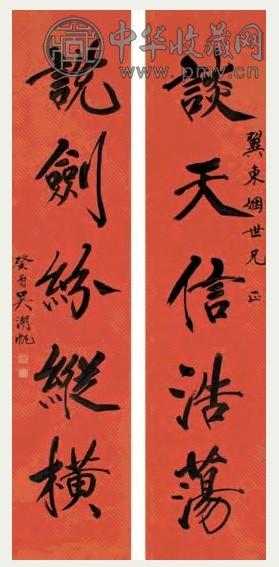 中华收藏网
www.pmv.cn
翼東姻世兄 正
談天信浩蕩
說劍紛縱橫
癸酉吳湖帆